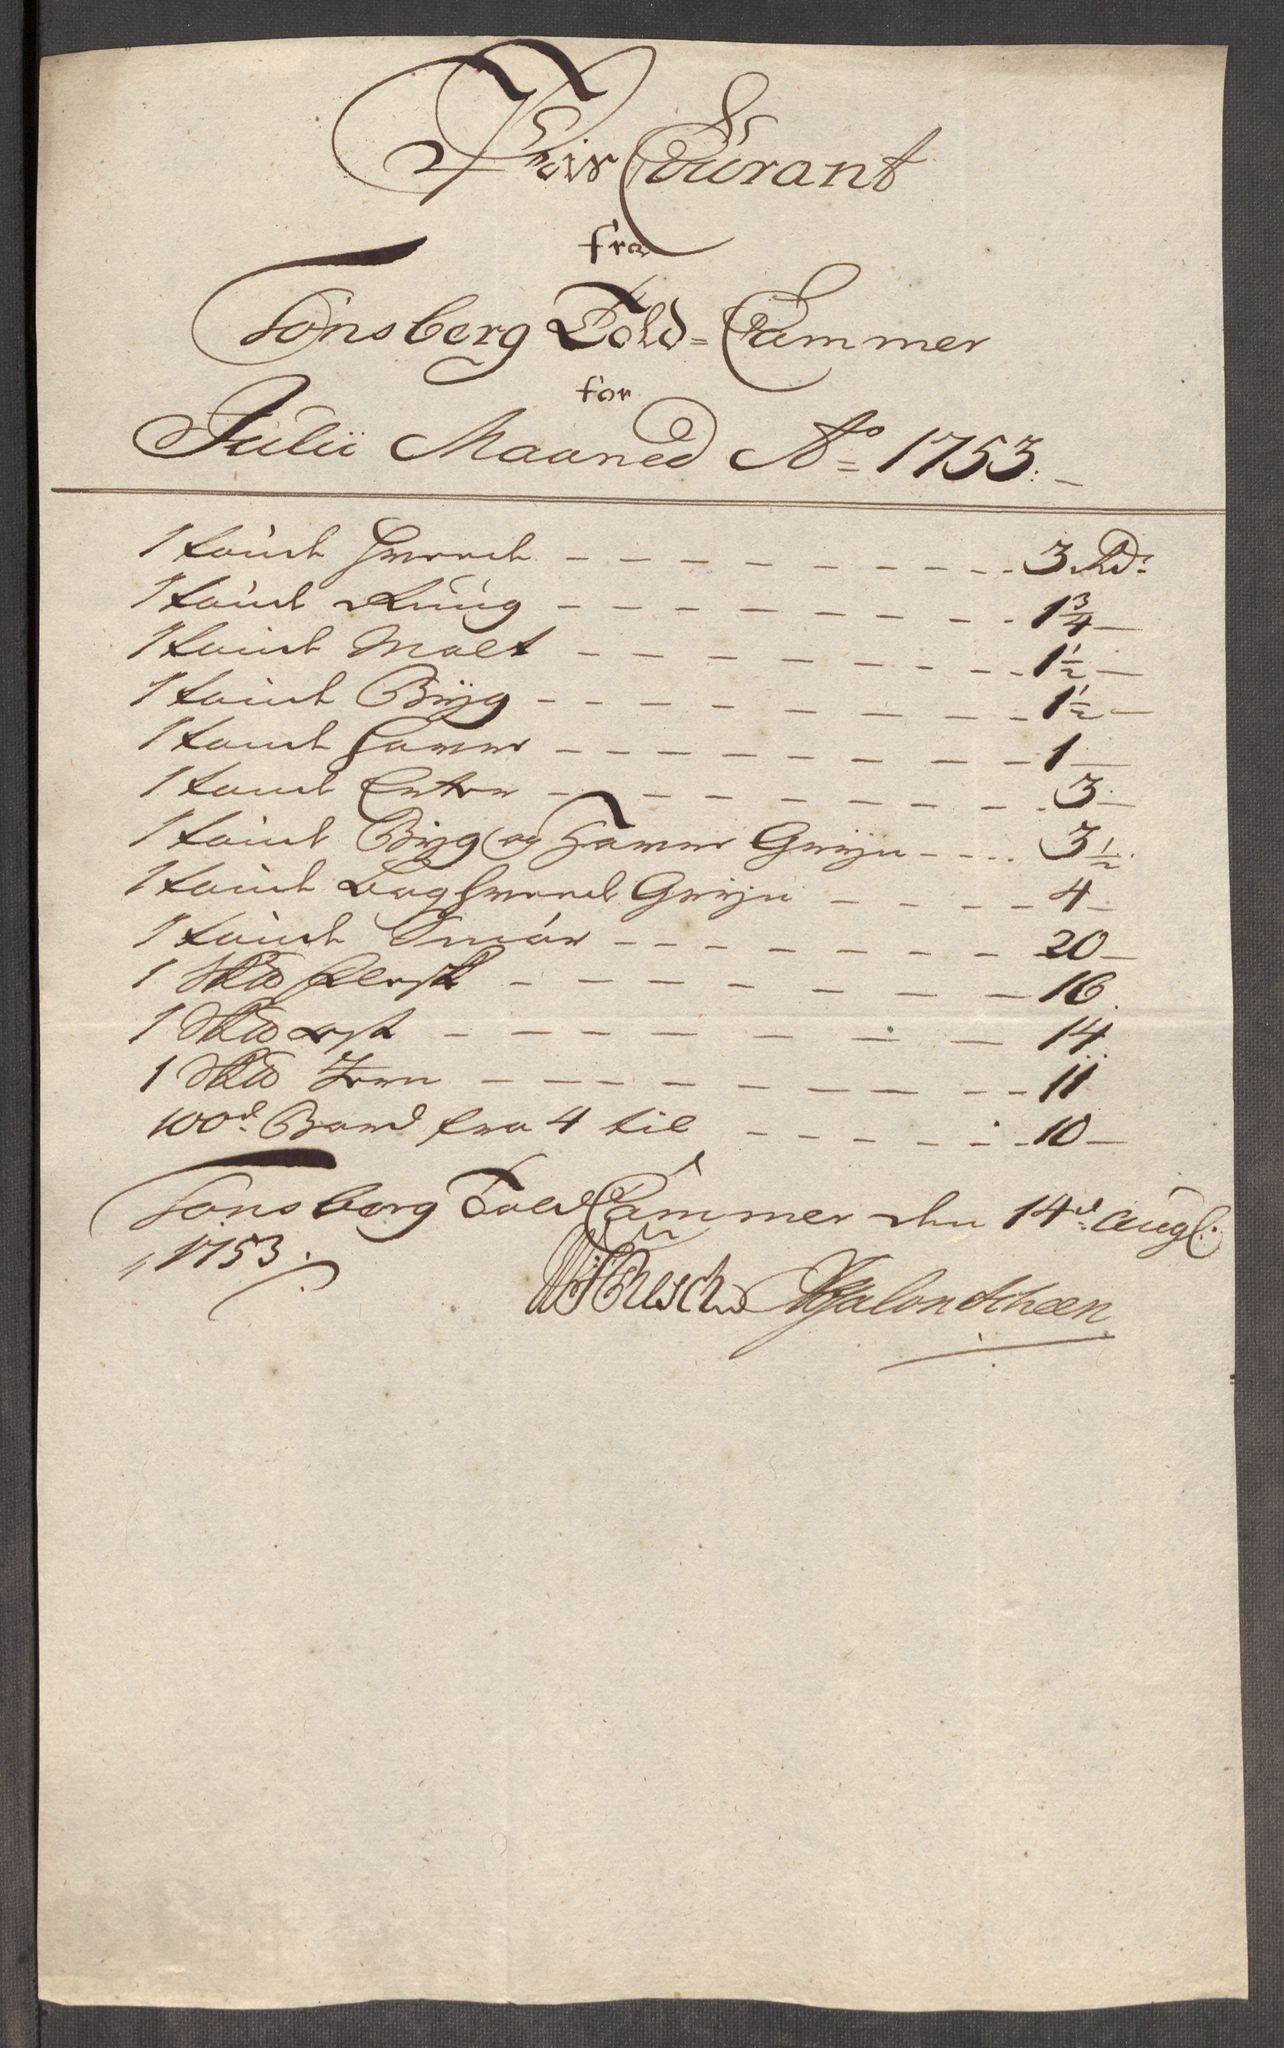 Priis Courant
fra
Tonsberg Told=Cammer
for
Julii Maaned Ao= 1753.
1 tønde Hvede - - - 3 Rd:
1 tønde Rug - - - 1 3/4
1 tønde Malt - - - 1 1/2
1 tønde Byg - - - 1 1/2
1 tønde Haver - - - 1
1 tønde Erter - - - 3
1 tønde Byg og Haver Gryn - - - 3 1/2
1 tønde Boghvede Gryn - - - 4
1 tønde Smør - - - 20
1 Sk℔ Flesk - - - 16
1 Sk℔ Ost - - - 14
1 Sk℔ Jern - - - 11
100d: Bord fra 4 til - - - 10
Tonsberg Told Cammer den 14d: Augl:
1753.